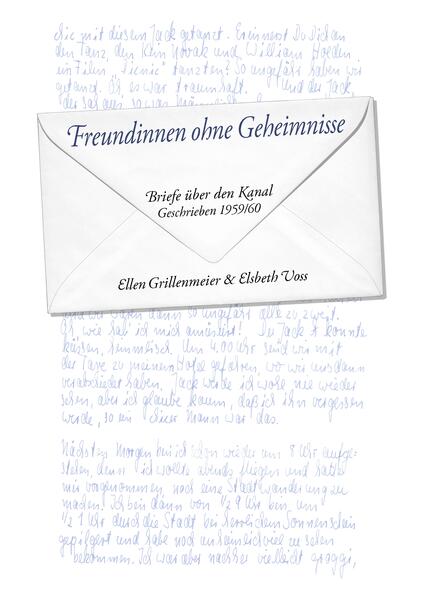 chic mit diesem Jack getanzt. Erinnerst Du Dich an
den Tanz, den Kim Novak und William Holden
im Film „Picnic" tanzten? So ungefähr haben wir
getanzt. Oh, es war traumhaft. und der Jack,
der sah aus
Freundinnen ohne Geheimnisse
Briefe über den Kanal
Geschrieben 1959/60
Ellen Grillenmeier & Elsbeth Voss
und wir waren dann so ungefähr alle zu zweit.
Oh, wie hab' ich mich amüsiert! Der Jack konnte
küssen, himmlisch. Um 4.00 Uhr sind wir mit
der Taxe zu meinem Hotel gefahren, wo wir uns dann
verabschiedet haben. Jack werde ich wohl nie wieder
sehen, aber ich glaube kaum, daß ich ihn vergessen
werde, so ein chicer Mann war das.
Nächsten Morgen bin ich schon wieder um 8 Uhr aufge-
standen, denn ich wollte abends fliegen und hatte
mir vorgenommen, noch eine Stadtwanderung zu
machen. Ich bin dann von ½ 9 Uhr bis um
½ 1 Uhr durch die Stadt bei herrlichem Sonnenschein
gepilgert und habe noch unheimlich viel zu sehen
bekommen. Ich war aber nachher vielleicht groggy,